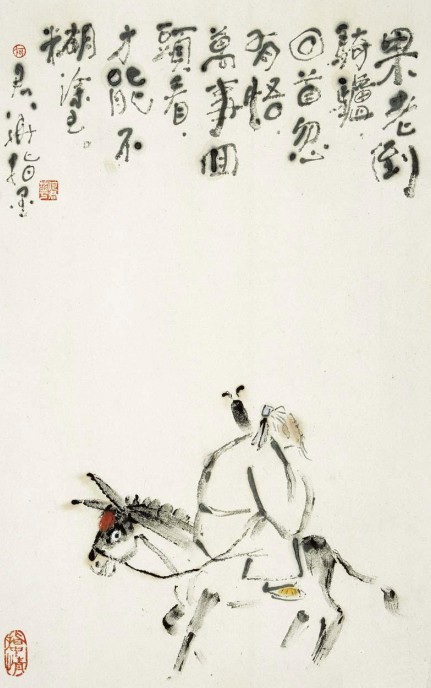 果老倒
騎驢。
回首忽
有悟。
萬事回
頭看。
才能不
糊涂也。
指墨